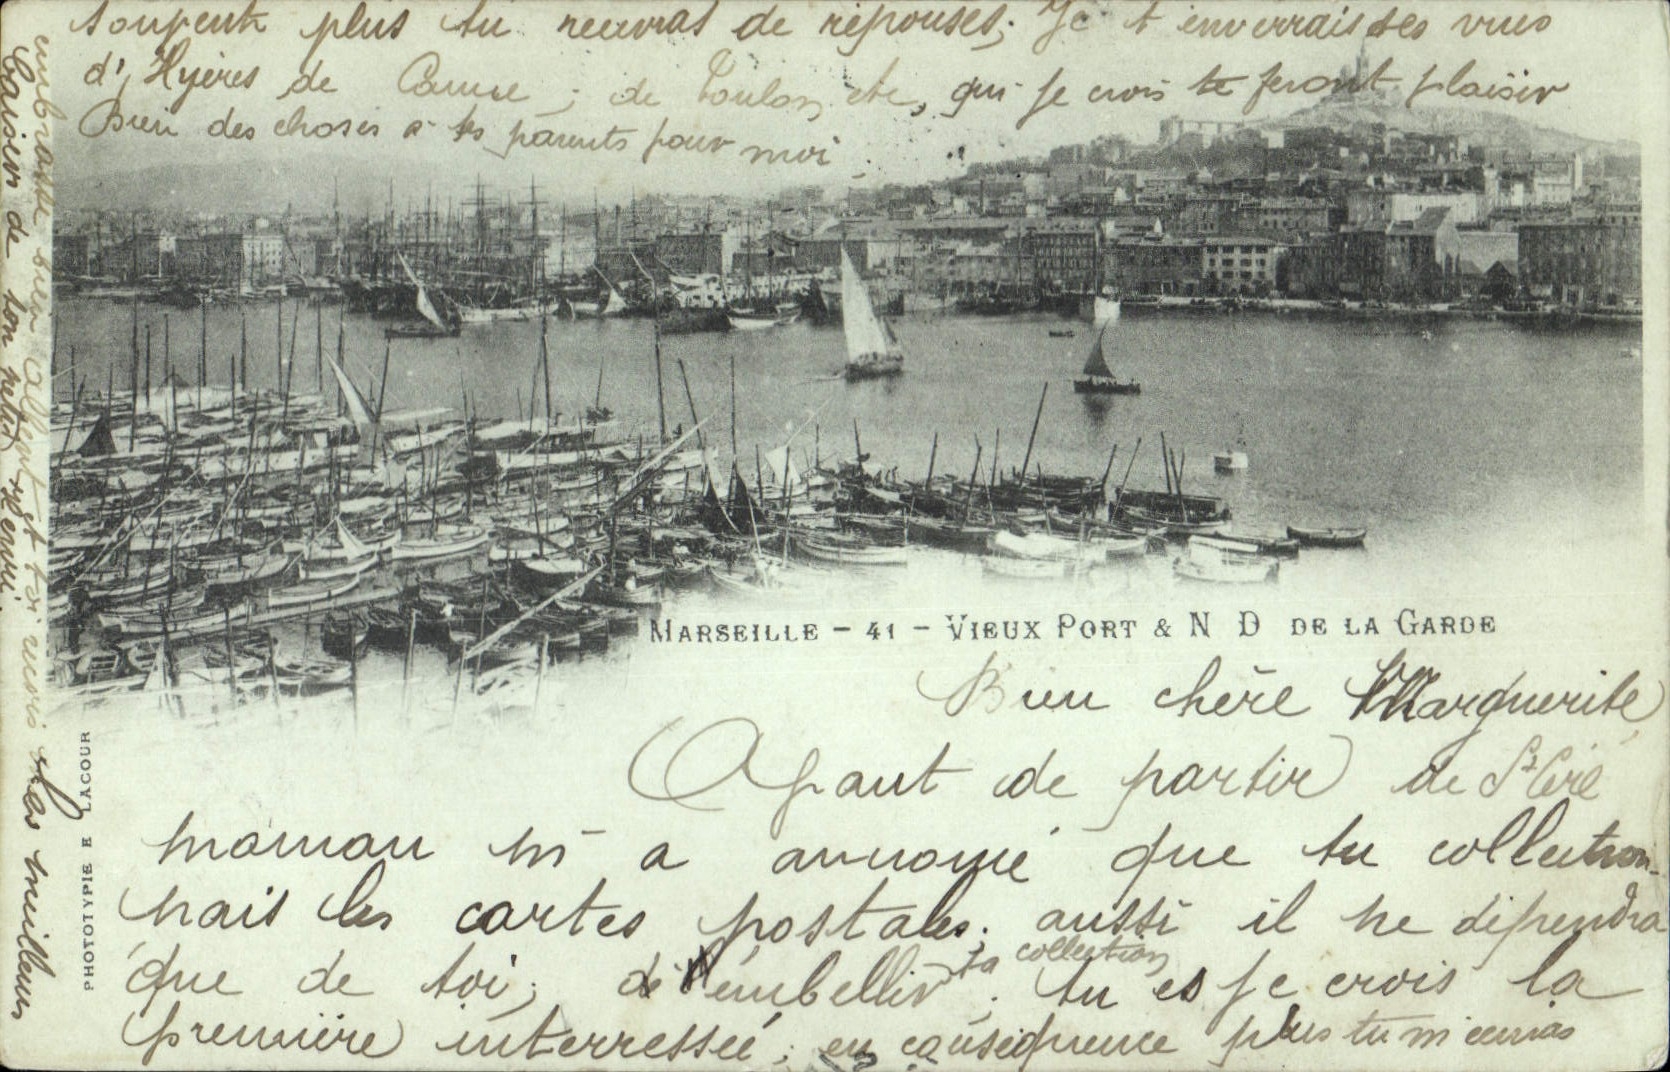 MARSEILLE - 41 - VIEUX PORT & N D DE LA GARDE
PHOTOTYPIE E LACOUR
Bien chère Marguerite
Ayant de partir de St Ceré
maman m'a annoncé que tu collection-
nais les cartes postales; aussi il ne dépendra
que de toi; de l'embellir ta collection. tu es je crois la
première interressée; en conséquence plus tu m'écriras
souvent plus tu recevras de réponses; Je t'enverrais des vues
d'Hyères de Cannes; de Toulon, etc, qui je crois te feront plaisir
Bien des choses à tes parents pour moi
embrasse bien Albert et toi reçois les meilleurs
baisers de ton petit Henri.